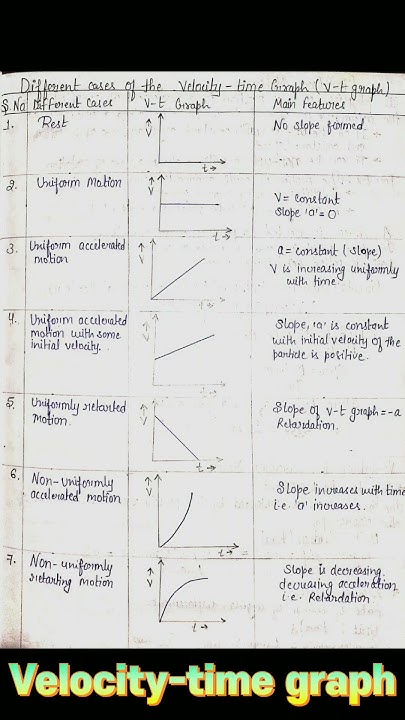 Different cases of the Velocity-time Graph (V-t graph)
S.No Different Cases V-t Graph Main Features
1. Rest ↑ V t→ No slope formed.
2. Uniform Motion ↑ V t→ V = constant
Slope 'a' = 0
3. Uniform accelerated
motion ↑ V t→ a = constant (slope)
V is increasing uniformly
with time.
4. Uniform accelerated
motion with some
initial velocity. ↑ V t→ Slope, 'a' is constant
with initial velocity of the
particle is positive.
5. Uniformly retarted
Motion. ↑ V t→ Slope of v-t graph = -a
Retardation.
6. Non-uniformly
accelerated motion ↑ V t→ Slope increases with time
i.e. 'a' increases.
7. Non-uniformly
retarting motion ↑ V t→ Slope is decreasing,
decreasing acceleration
i.e. Retardation
Velocity-time graph